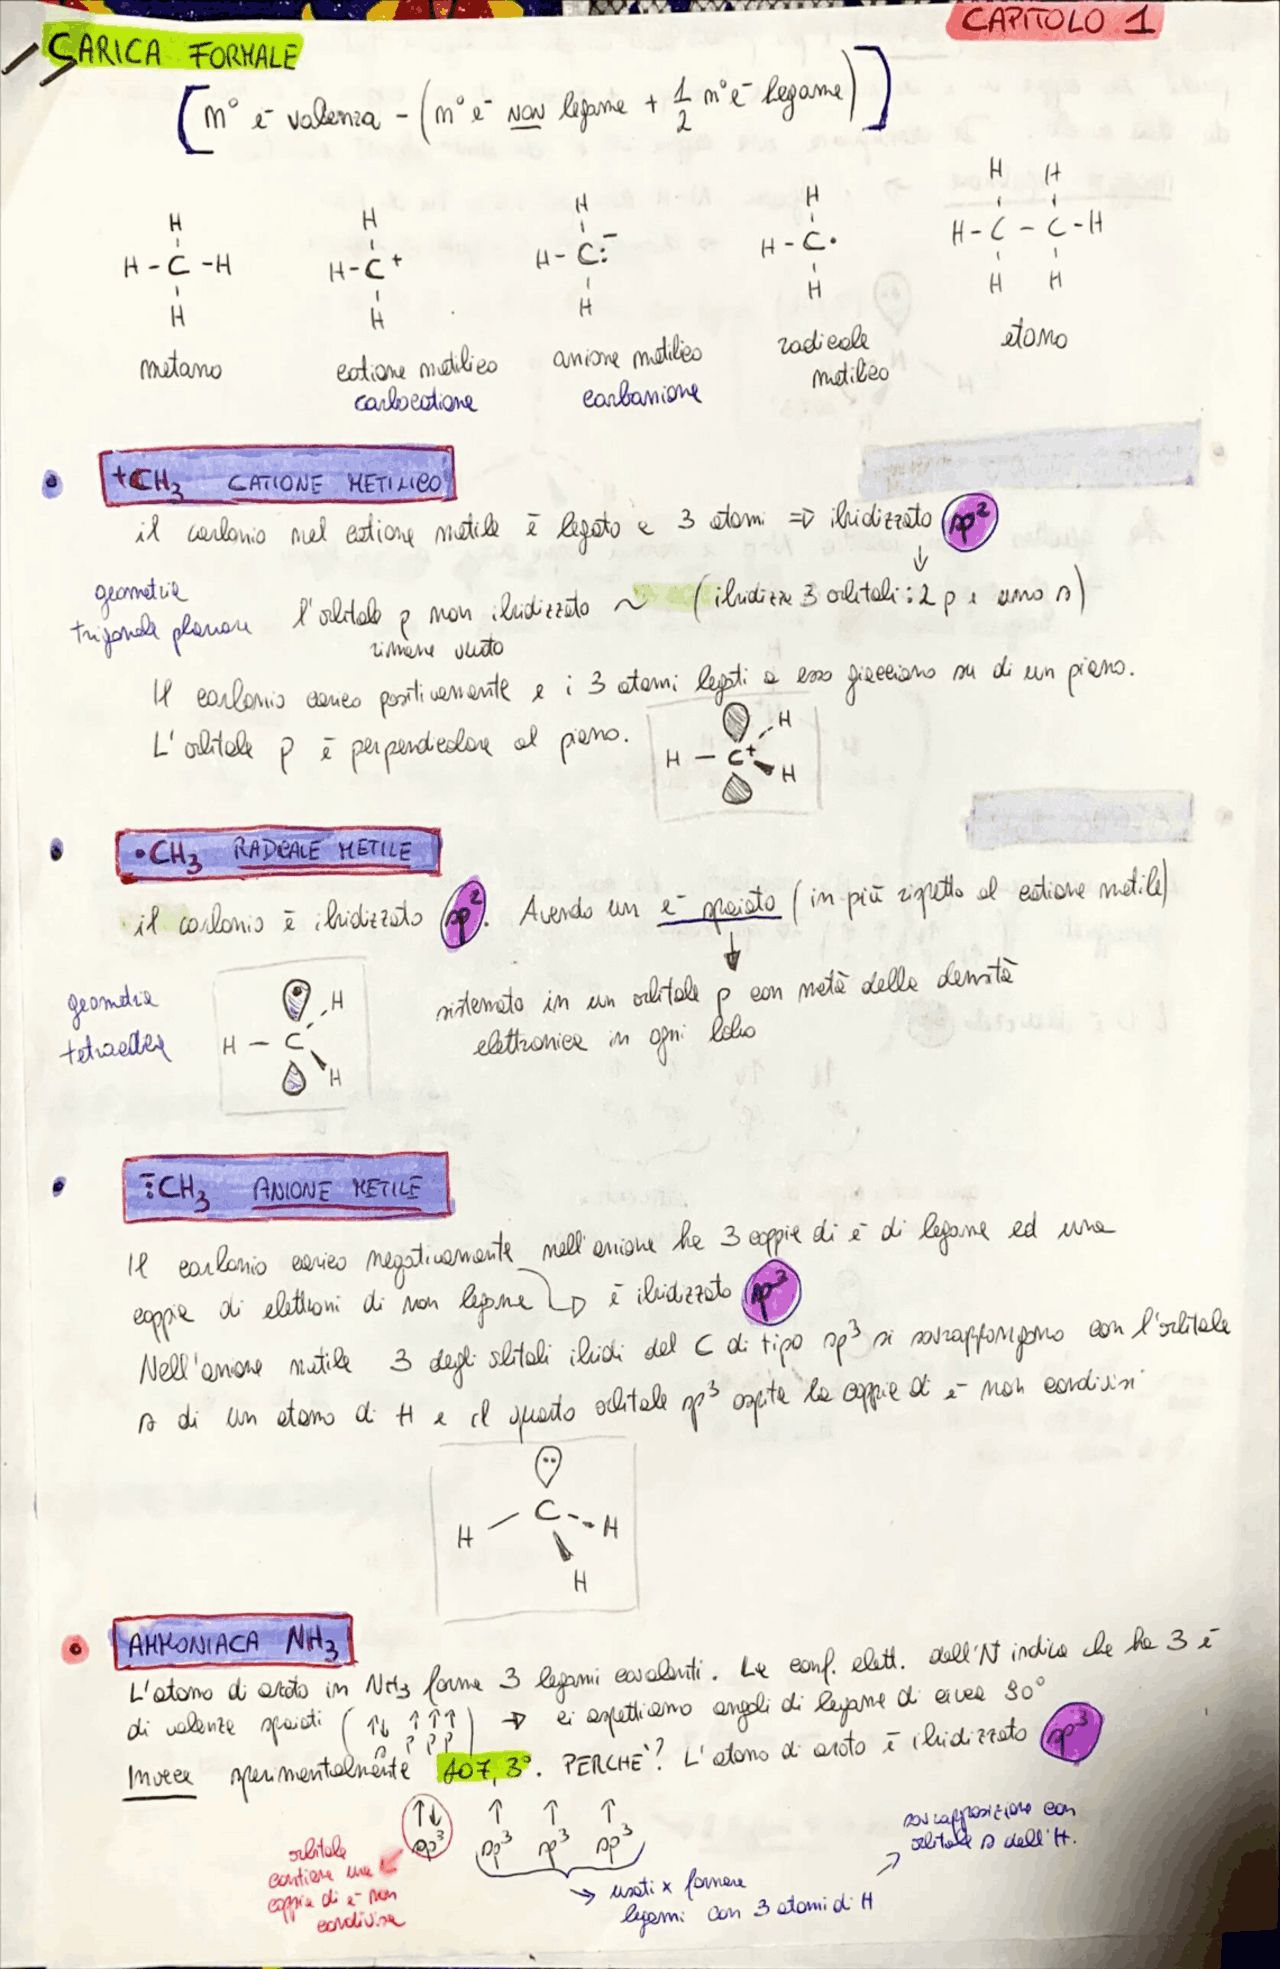 CAPITOLO 1
CARICA FORMALE
[n° e- valenza - (n° e- NON legame + 1/2 n° e- legame)]
H H H H H H
H-C-H H-C+ H-C:- H-C· H-C-C-H
H H H H H H
metano catione metilico anione metilico radicale metilico etano
carbocatione carbanione
+CH3 CATIONE METILICO
il carbonio nel catione metile è legato a 3 atomi => ibridizzato sp2
geometria trigonale planare
l'orbitale p non ibridizzato ~ (ibridizza 3 orbitali: 2 p e uno s)
rimane vuoto
Il carbonio carico positivamente e i 3 atomi legati a esso giacciono su di un piano.
L'orbitale p è perpendicolare al piano.
H - C+ H H
·CH3 RADICALE METILE
il carbonio è ibridizzato sp2. Avendo un e- spaiato (in più rispetto al catione metile)
sistemato in un orbitale p con metà della densità
elettronica in ogni lobo
geometria
tetraedrica
H - C H H
:CH3 ANIONE METILE
Il carbonio carico negativamente nell'anione ha 3 coppie di e- di legame ed una
coppia di elettroni di non legame → è ibridizzato sp3
Nell'anione metile 3 degli orbitali ibridi del C di tipo sp3 si sovrappongono con l'orbitale
s di un atomo di H e il quarto orbitale sp3 ospita la coppia di e- non condivisi
H C H
H
AMMONIACA NH3
L'atomo di azoto in NH3 forma 3 legami covalenti. La conf. elett. dell'N indica che ha 3 e-
di valenza spaiati (↑↓ ↑ ↑ ↑) → ci aspettiamo angoli di legame di circa 90°
s p p p
Invece sperimentalmente 107,3°. PERCHE'? L'atomo di azoto è ibridizzato sp3
↑↓ ↑ ↑ ↑
sp3 sp3 sp3 sp3
orbitale
contiene una
coppia di e- non
condivisa
→ usati x formare
legami con 3 atomi di H
sovrapposizione con
orbitale s dell'H.